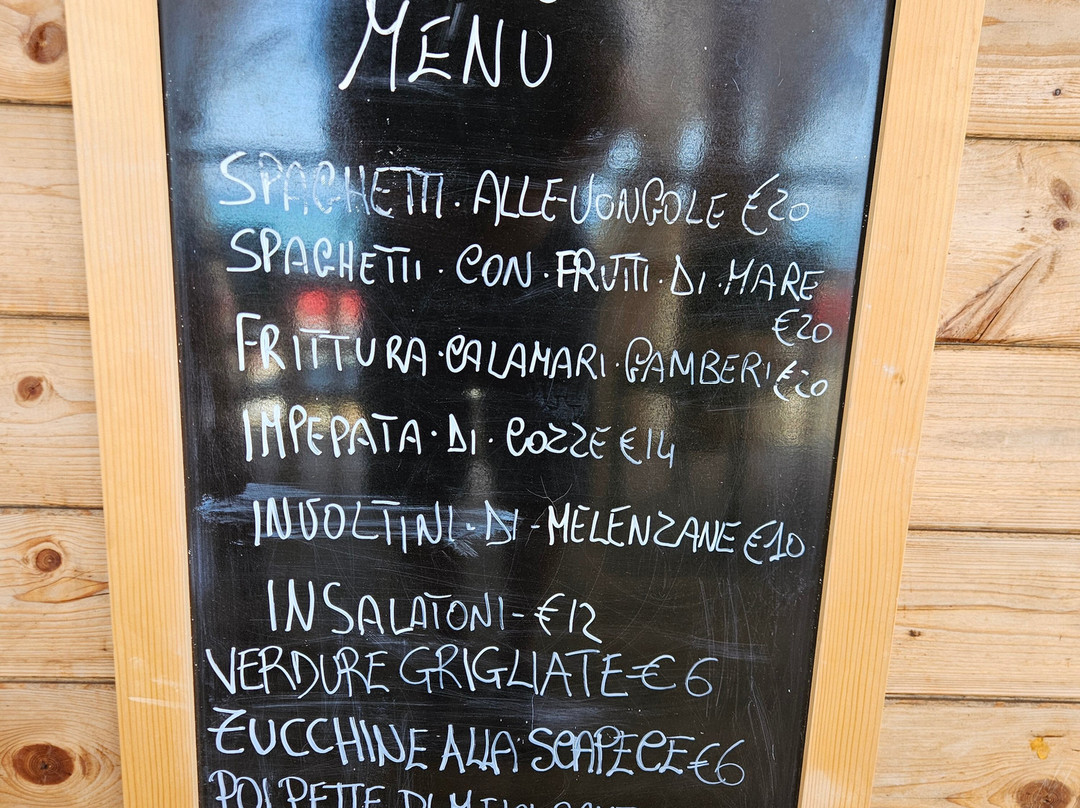 MENU
SPAGHETTI. ALLE-VONGOLE €20
SPAGHETTI. CON. FRUTTI. DI. MARE
€20
FRITTURA. CALAMARI. GAMBERI €20
IMPEPATA. DI. COZZE €14
INVOLTINI. DI-MELENZANE €10
INSALATONI- €12
VERDURE GRIGLIATE-€6
ZUCCHINE ALLA SCAPECE €6
POLPETTE DI